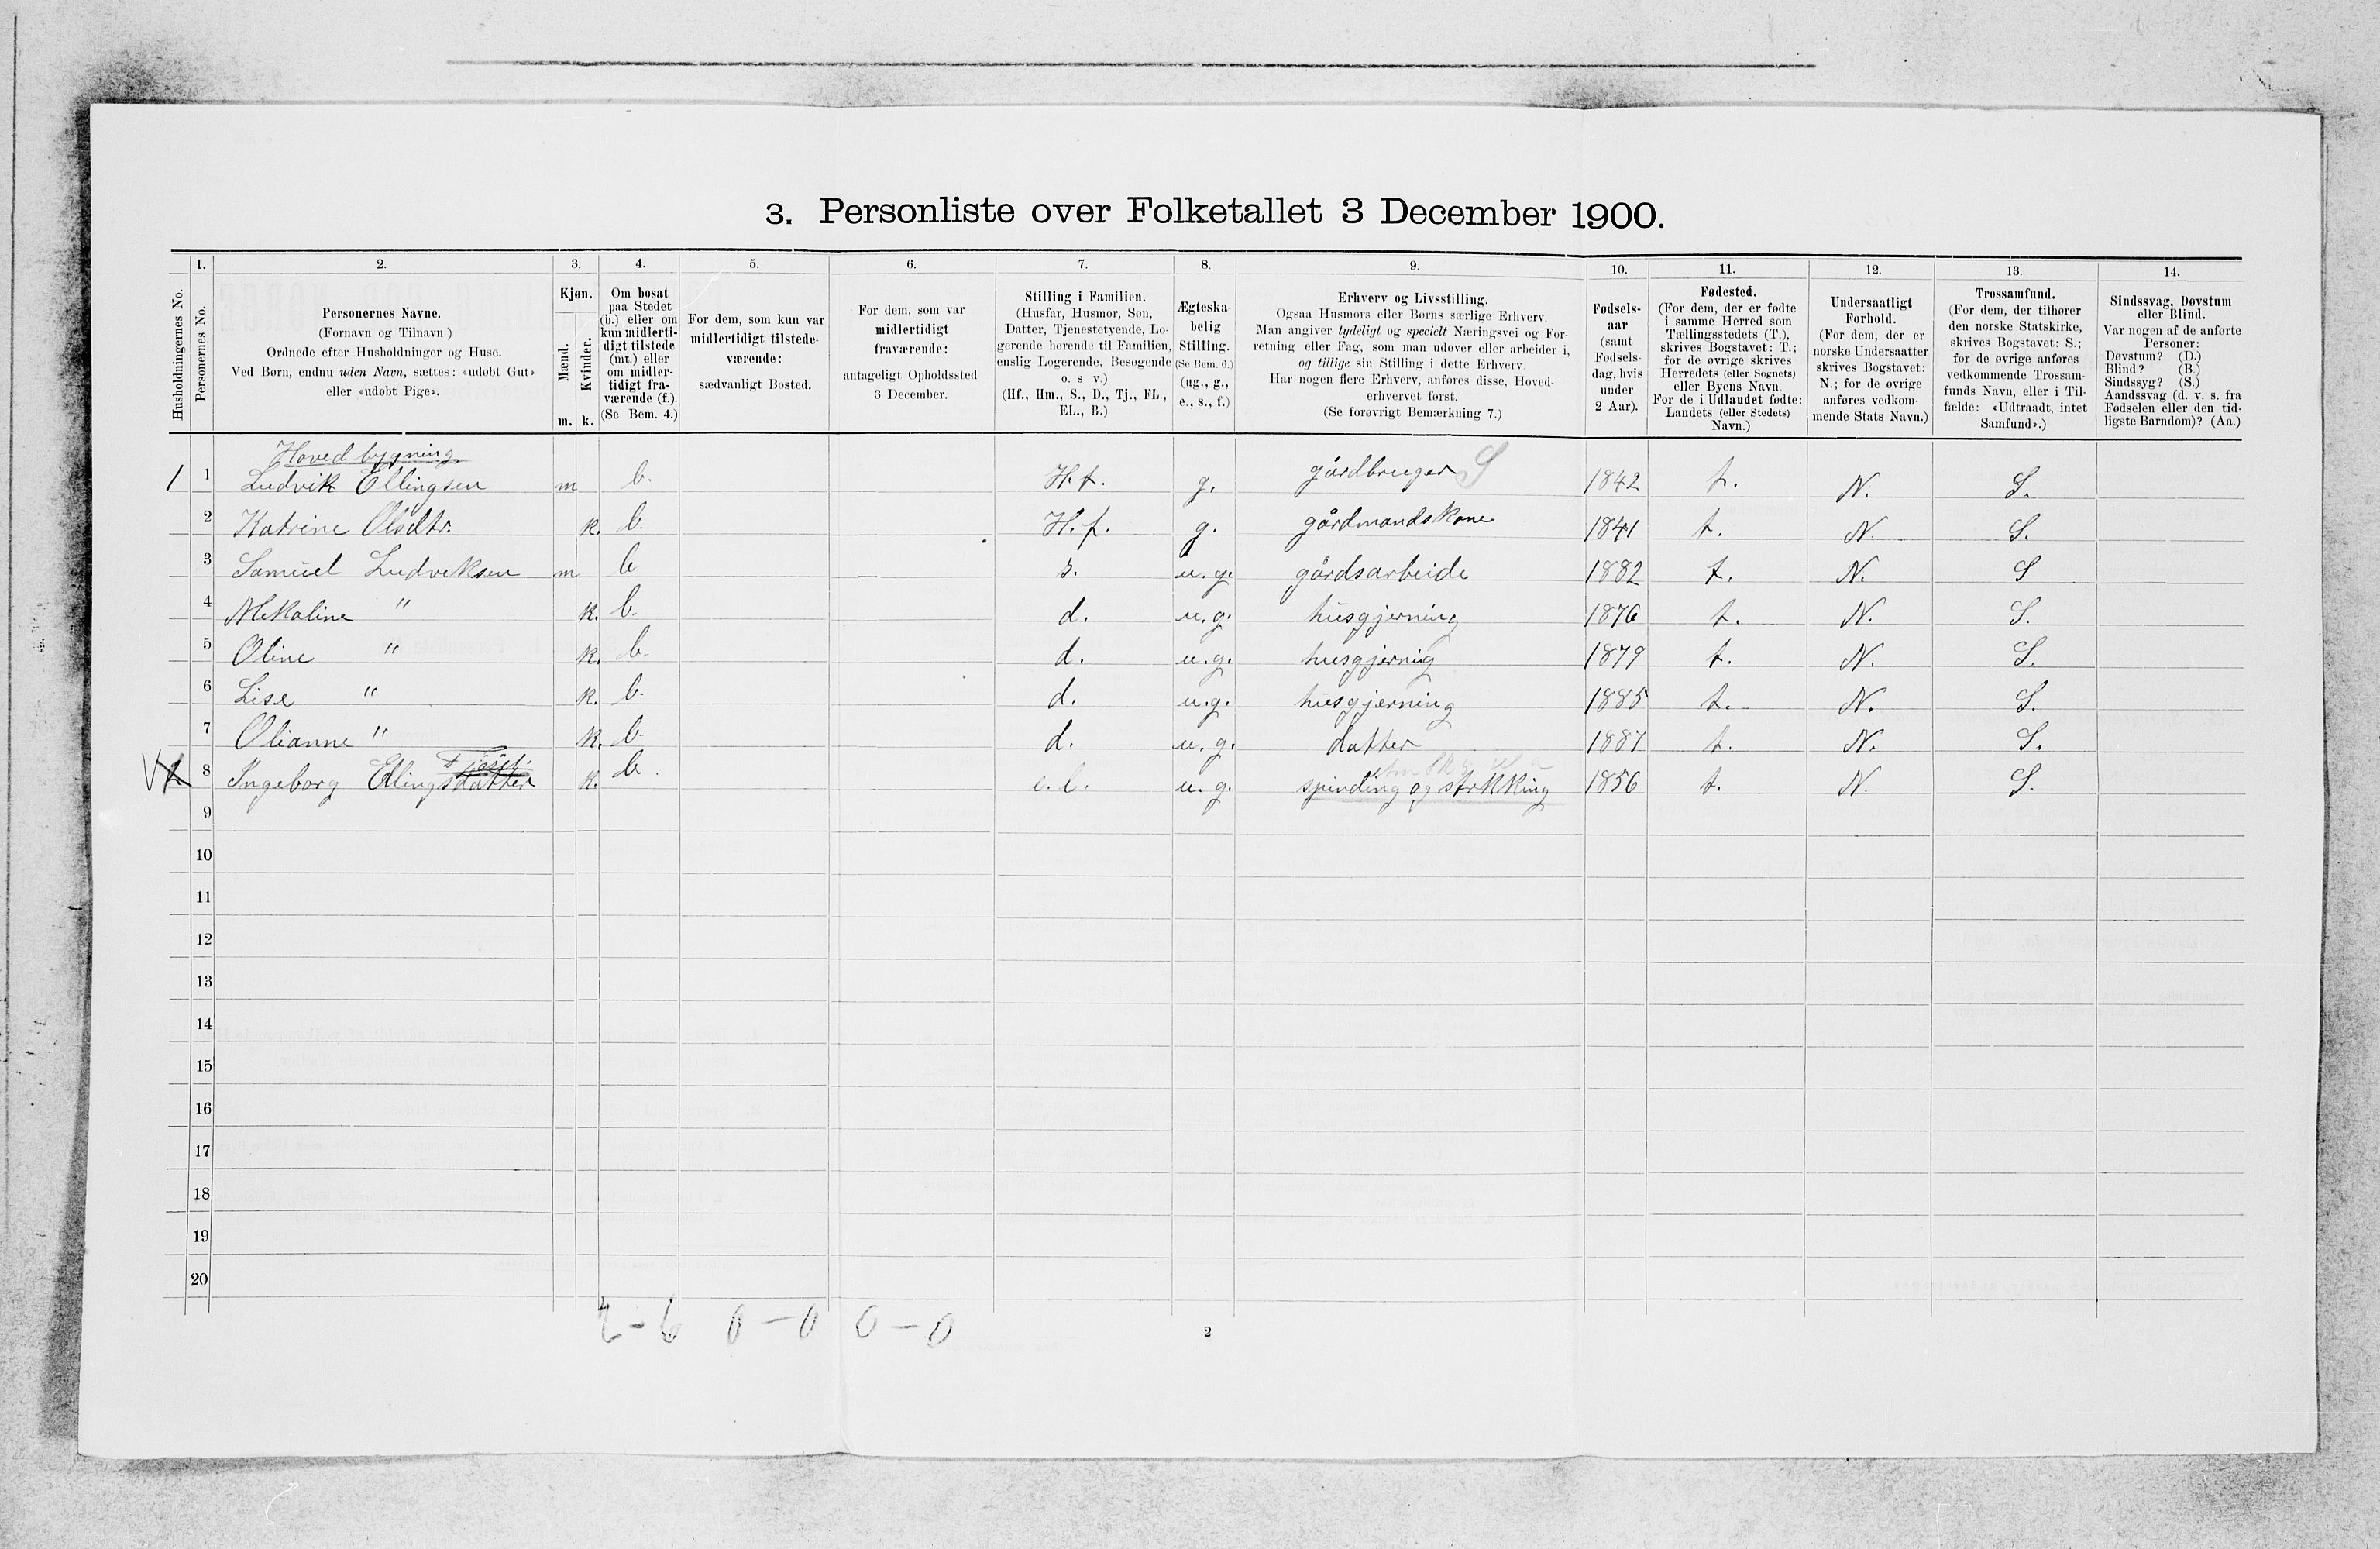 3. Personliste over Folketallet 3 December 1900.
Husholdningernes No.
1.
Personernes No.
2.
Personernes Navne.
(Fornavn og Tilnavn)
Ordnede efter Husholdninger og Huse.
Ved Børn, endnu uden Navn, sættes: «udøbt Gut»
eller «udøbt Pige».
3.
Kjøn.
Mænd.
Kvinder.
m. k.
4.
Om bosat
paa Stedet
(b.) eller om
kun midlerti-
digt tilstede
(mt.) eller
om midler-
tidigt fra-
værende (f.).
(Se Bem. 4.)
5.
For dem, som kun var
midlertidigt tilstede-
værende:
sædvanligt Bosted.
6.
For dem, som var
midlertidigt
fraværende:
antageligt Opholdssted
3 December.
7.
Stilling i Familien.
(Husfar, Husmor, Søn,
Datter, Tjenestetyende, Lo-
gerende hørende til Familien,
enslig Logerende, Besøgende
o. s v.)
(Hf., Hm., S., D., Tj., FL.,
EL., B.)
8.
Ægteska-
belig
Stilling.
(Se Bem. 6.)
(ug., g.,
e., s., f.)
9.
Erhverv og Livsstilling.
Ogsaa Husmors eller Børns særlige Erhverv.
Man angiver tydeligt og specielt Næringsvei og For-
retning eller Fag, som man udøver eller arbeider i,
og tillige sin Stilling i dette Erhverv.
Har nogen flere Erhverv, anføres disse, Hoved-
erhvervet først.
(Se forøvrigt Bemærkning 7.)
10.
Fødsels-
aar
(samt
Fødsels-
dag, hvis
under
2 Aar).
11.
Fødested.
(For dem, der er fødte
i samme Herred som
Tællingsstedets (T.),
skrives Bogstavet: T.;
for de øvrige skrives
Herredets (eller Sognets)
eller Byens Navn.
For de i Udlandet fødte:
Landets (eller Stedets)
Navn.)
12.
Undersaatligt
Forhold.
(For dem, der er
norske Undersaatter
skrives Bogstavet:
N.; for de øvrige
anføres vedkom-
mende Stats Navn.)
13.
Trossamfund.
(For dem, der tilhører
den norske Statskirke,
skrives Bogstavet: S.;
for de øvrige anføres
vedkommende Trossam-
funds Navn, eller i Til-
fælde: «Udtraadt, intet
Samfund».)
14.
Sindssvag, Døvstum
eller Blind.
Var nogen af de anførte
Personer:
Døvstum? (D.)
Blind? (B.)
Sindssyg? (S.)
Aandssvag (d. v. s. fra
Fødselen eller den tid-
ligste Barndom)? (Aa.)
Hovedbygning
1 1 Ludvik Ellingsen m b. H.f. g. gårdbruger S 1842 t. N. S.
2 Katrine Olsdtr. k. b. H.f. g. gårdmandskone 1841 t. N. S.
3 Samuel Ludviksen m b s. u.g. gårdsarbeide 1882 t. N. S
4 Mekaline " k. b. d. u.g. husgjerning 1876 t. N. S.
5 Oline " k. b. d. u.g. husgjernig 1879 t. N. S.
6 Lise " k. b. d. u.g. husgjerning 1885 t. N. S.
7 Olianne " k. b. d. u.g. datter 1887 t. N. S.
8 Ingeborg Ellingsdatter k. b. e.l. u.g. spinding og strikking 1856 t. N. S.
9
10
11
12
13
14
15
16
17
18
19
20
2-6 0-0 0-0
2